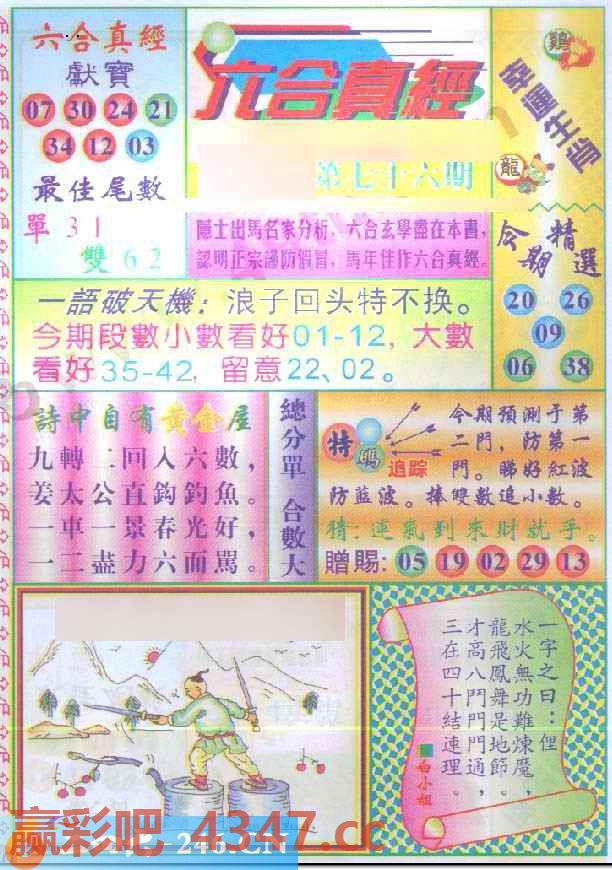 六合真經
獻寶
07 30 24 21
34 12 03
最佳尾數
單 3 1
雙 6 2
六合真經
第七十六期
隱士出馬名家分析，六合玄學盡在本書，
認明正宗謹防假冒，馬年佳作六合真經。
鷄
幸運生肖
龍
今期精選
20 26
09
06 38
一語破天機：浪子回头特不换。
今期段數小數看好01-12, 大數
看好35-42, 留意22、02。
詩中自有黃金屋
九轉二回入六數，
姜太公直鈎釣魚。
一車一景春光好，
一二盡力六面罵。
總分單 合數大
特碼
追踪
今期預測于第
二門，防第一
門。睇好紅波
防藍波。捧雙數追小數。
猜：運氣到來財就手。
贈賜: 05 19 02 29 13
一字之曰：俚
水火無功難煉魔，
龍飛鳳舞是地節。
才高八門門門通，
三在四十結連理。
白小姐
赢彩吧 4347.cc
-246.CN